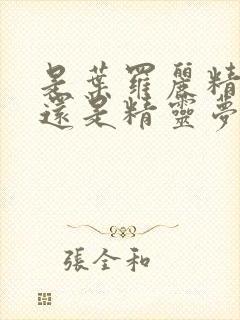 是葉羅麗精
還是精靈夢
張全和